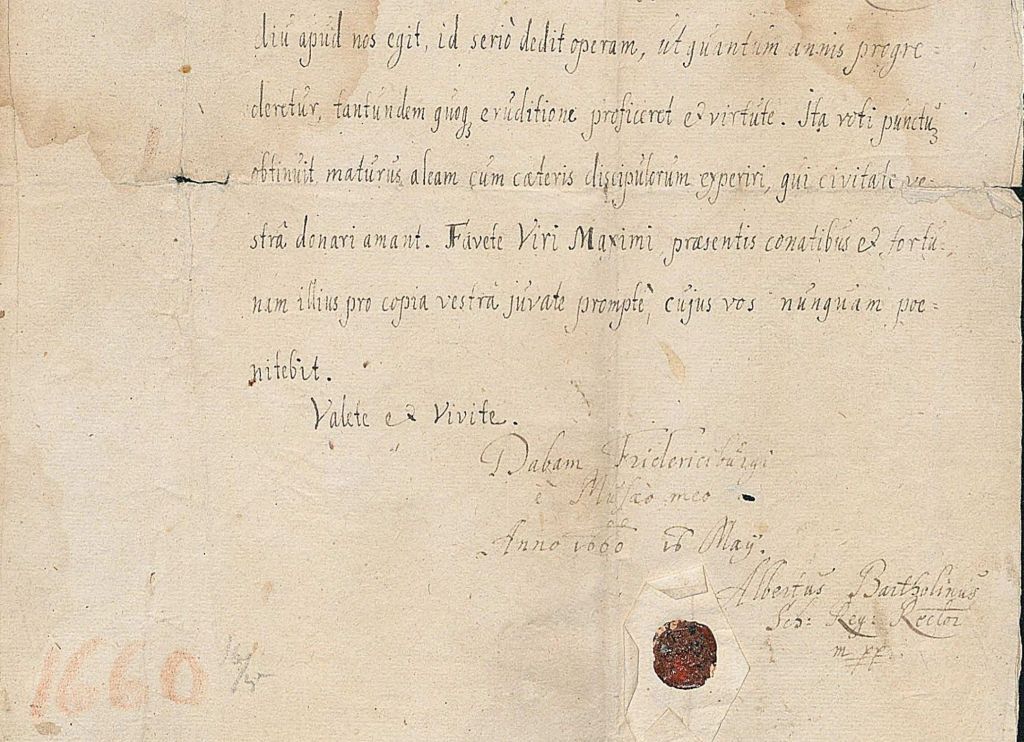 diu apud nos egit, id seriò dedit operam, ut quantum annis progre=
deretur, tantundem quoqꝫ eruditione proficeret et virtute. Ita voti punctuꝫ
obtinuit maturus aleam cum cæteris discipulorum experiri, qui civitate ve=
strâ donari amant. Favete Viri Maximi præsentis conatibus et fortu=
nam illius pro copia vestrâ juvate promptè, cujus vos nunquam poe=
nitebit.
Valete et Vivite.
Dabam Fridericiburgi
è Musæo meo
Anno 1660 16 May.
Albertus Bartholinus
Sch: Reg: Rector
m pp
1660 16/5